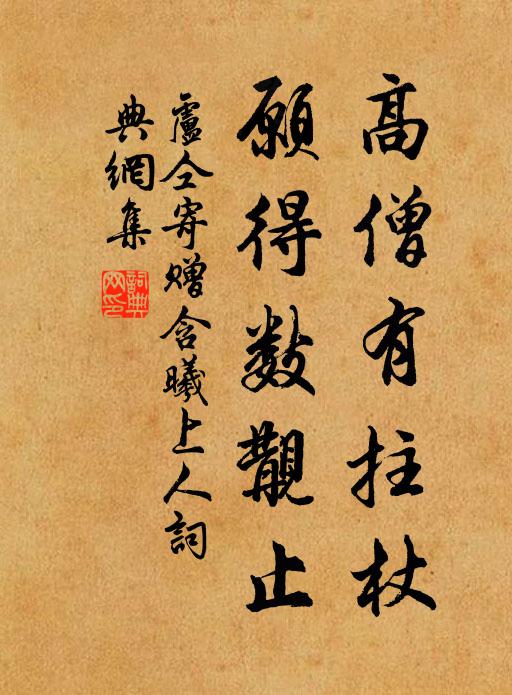 高僧有拄杖
願得數覯止
盧仝寄贈含曦上人詞
典網集
詞典网印